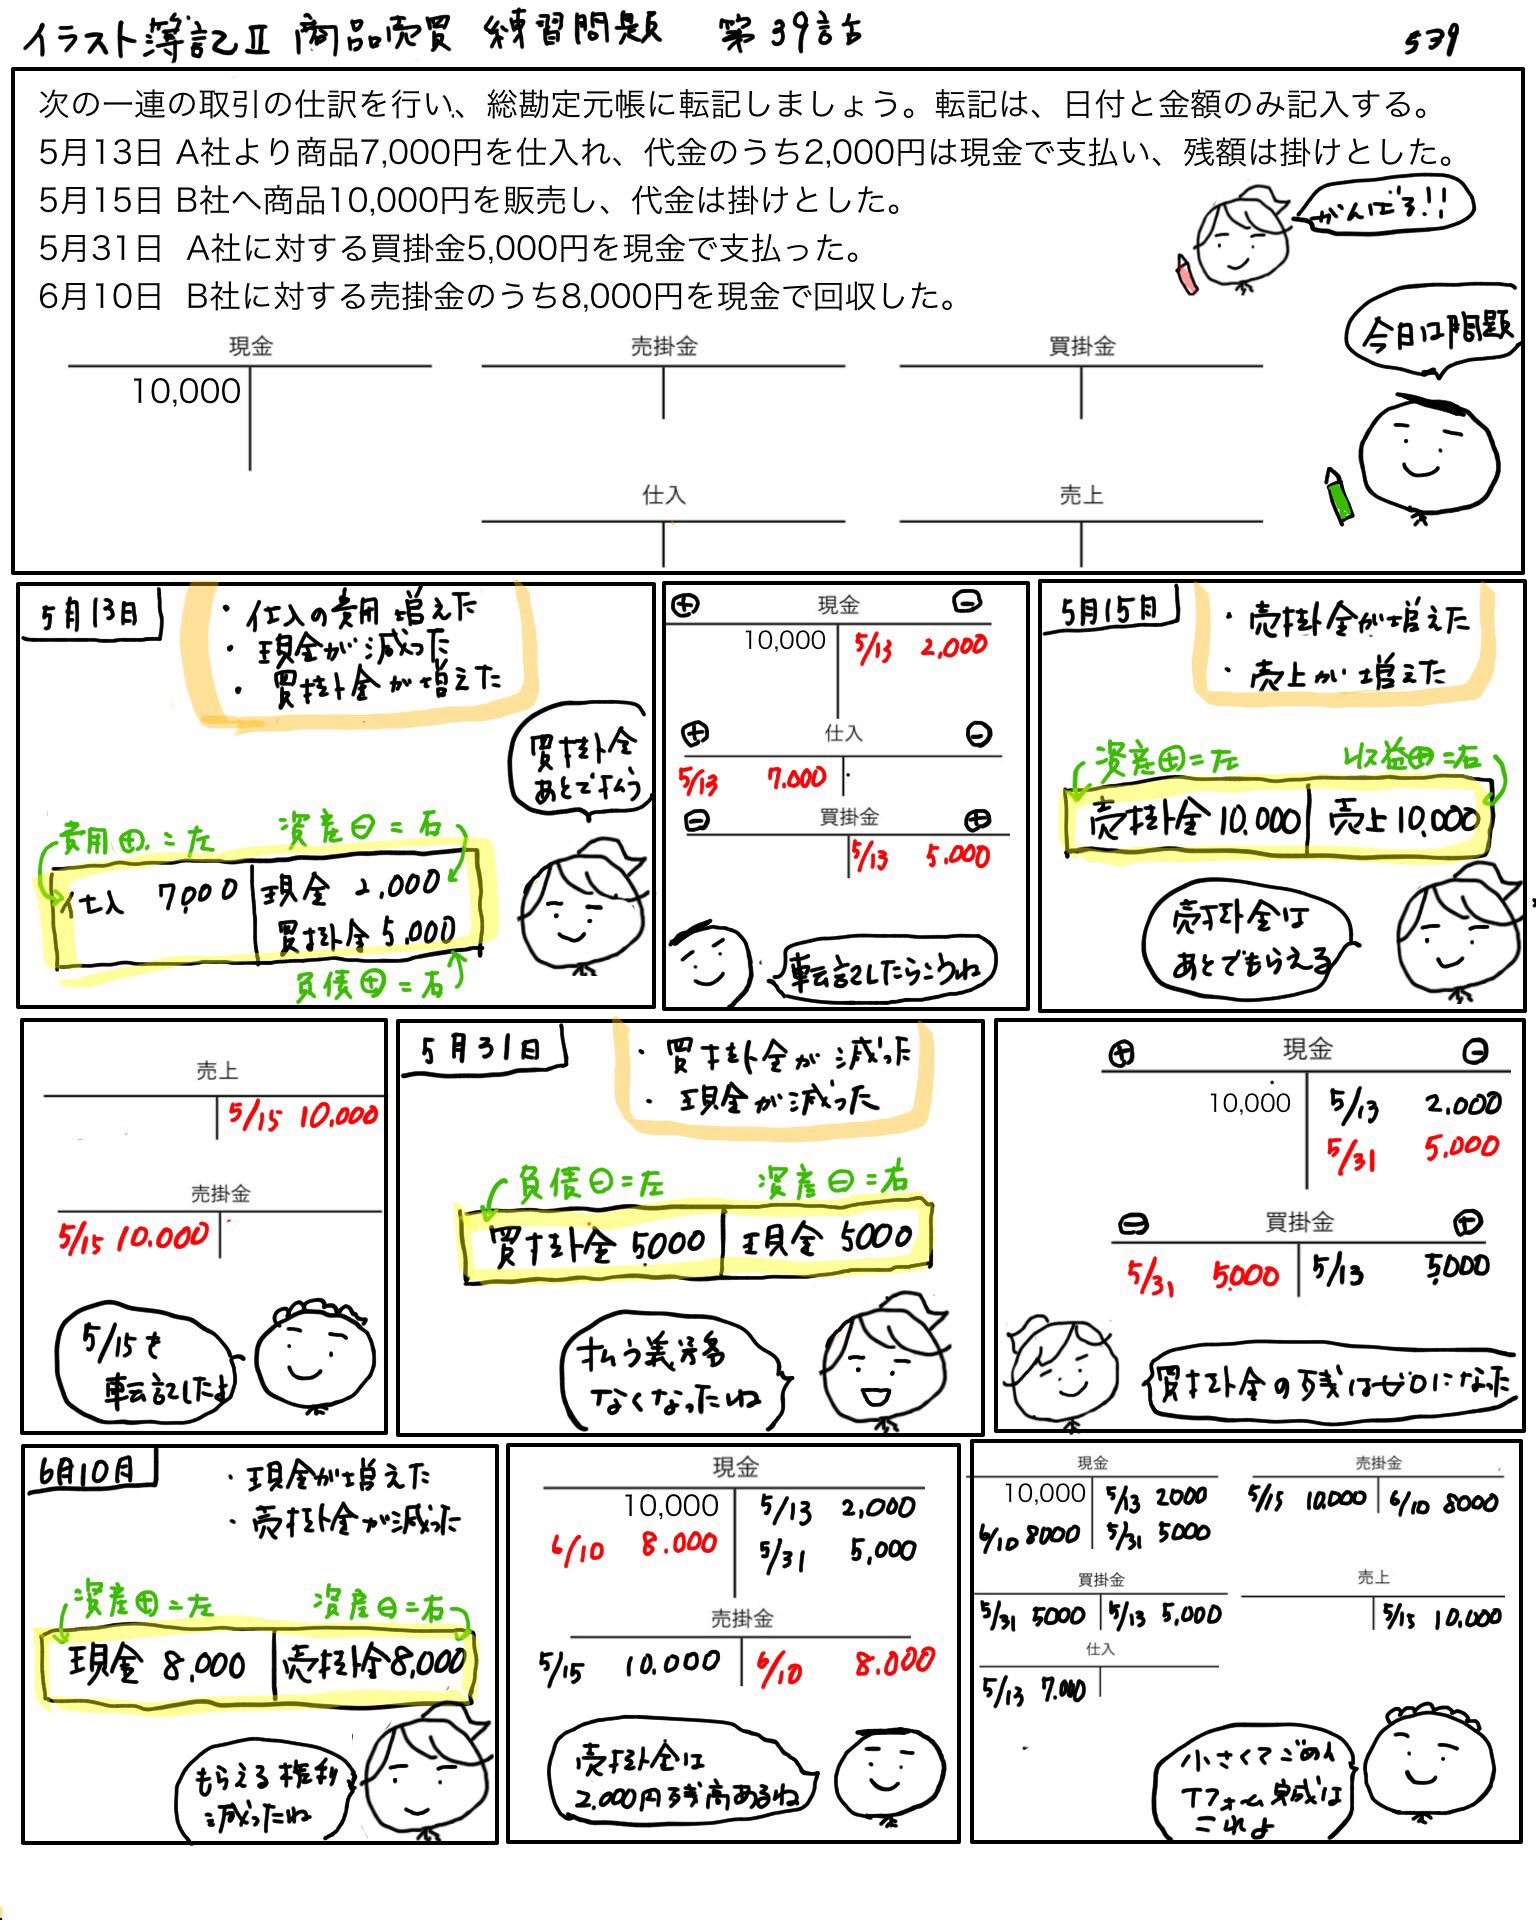 イラスト簿記Ⅱ 商品売買 練習問題 第39話 539
次の一連の取引の仕訳を行い、総勘定元帳に転記しましょう。転記は、日付と金額のみ記入する。
5月13日 A社より商品7,000円を仕入れ、代金のうち2,000円は現金で支払い、残額は掛けとした。
5月15日 B社へ商品10,000円を販売し、代金は掛けとした。
5月31日 A社に対する買掛金5,000円を現金で支払った。
6月10日 B社に対する売掛金のうち8,000円を現金で回収した。
がんばろ!!
今日は問題
現金 売掛金 買掛金
10,000
仕入 売上
5月13日
・仕入の費用増えた
・現金が減った
・買掛金が増えた
買掛金
あとで払う
費用⊕=左 資産⊖=右
仕入 7,000 現金 2,000
買掛金 5,000
負債⊕=右
⊕ 現金 ⊖
10,000 5/13 2,000
⊕ 仕入 ⊖
5/13 7,000
⊖ 買掛金 ⊕
5/13 5,000
転記したらこうね
5月15日
・売掛金が増えた
・売上が増えた
資産⊕=左 収益⊕=右
売掛金 10,000 売上 10,000
売掛金は
あとでもらえる
売上
5/15 10,000
売掛金
5/15 10,000
5/15を
転記したよ
5月31日
・買掛金が減った
・現金が減った
負債⊖=左 資産⊖=右
買掛金 5000 現金 5000
払う義務
なくなったね
⊕ 現金 ⊖
10,000 5/13 2,000
5/31 5,000
⊖ 買掛金 ⊕
5/31 5,000 5/13 5,000
買掛金の残はゼロになった
6月10日
・現金が増えた
・売掛金が減った
資産⊕=左 資産⊖=右
現金 8,000 売掛金 8,000
もらえる権利
減ったね
現金
10,000 5/13 2,000
6/10 8,000 5/31 5,000
売掛金
5/15 10,000 6/10 8,000
売掛金は
2,000円残高あるね
現金 売掛金
10,000 5/13 2000 5/15 10,000 6/10 8000
6/10 8000 5/31 5000
買掛金 売上
5/31 5000 5/13 5,000 5/15 10,000
仕入
5/13 7,000
小さくてごめん
Tフォーム完成は
これよ